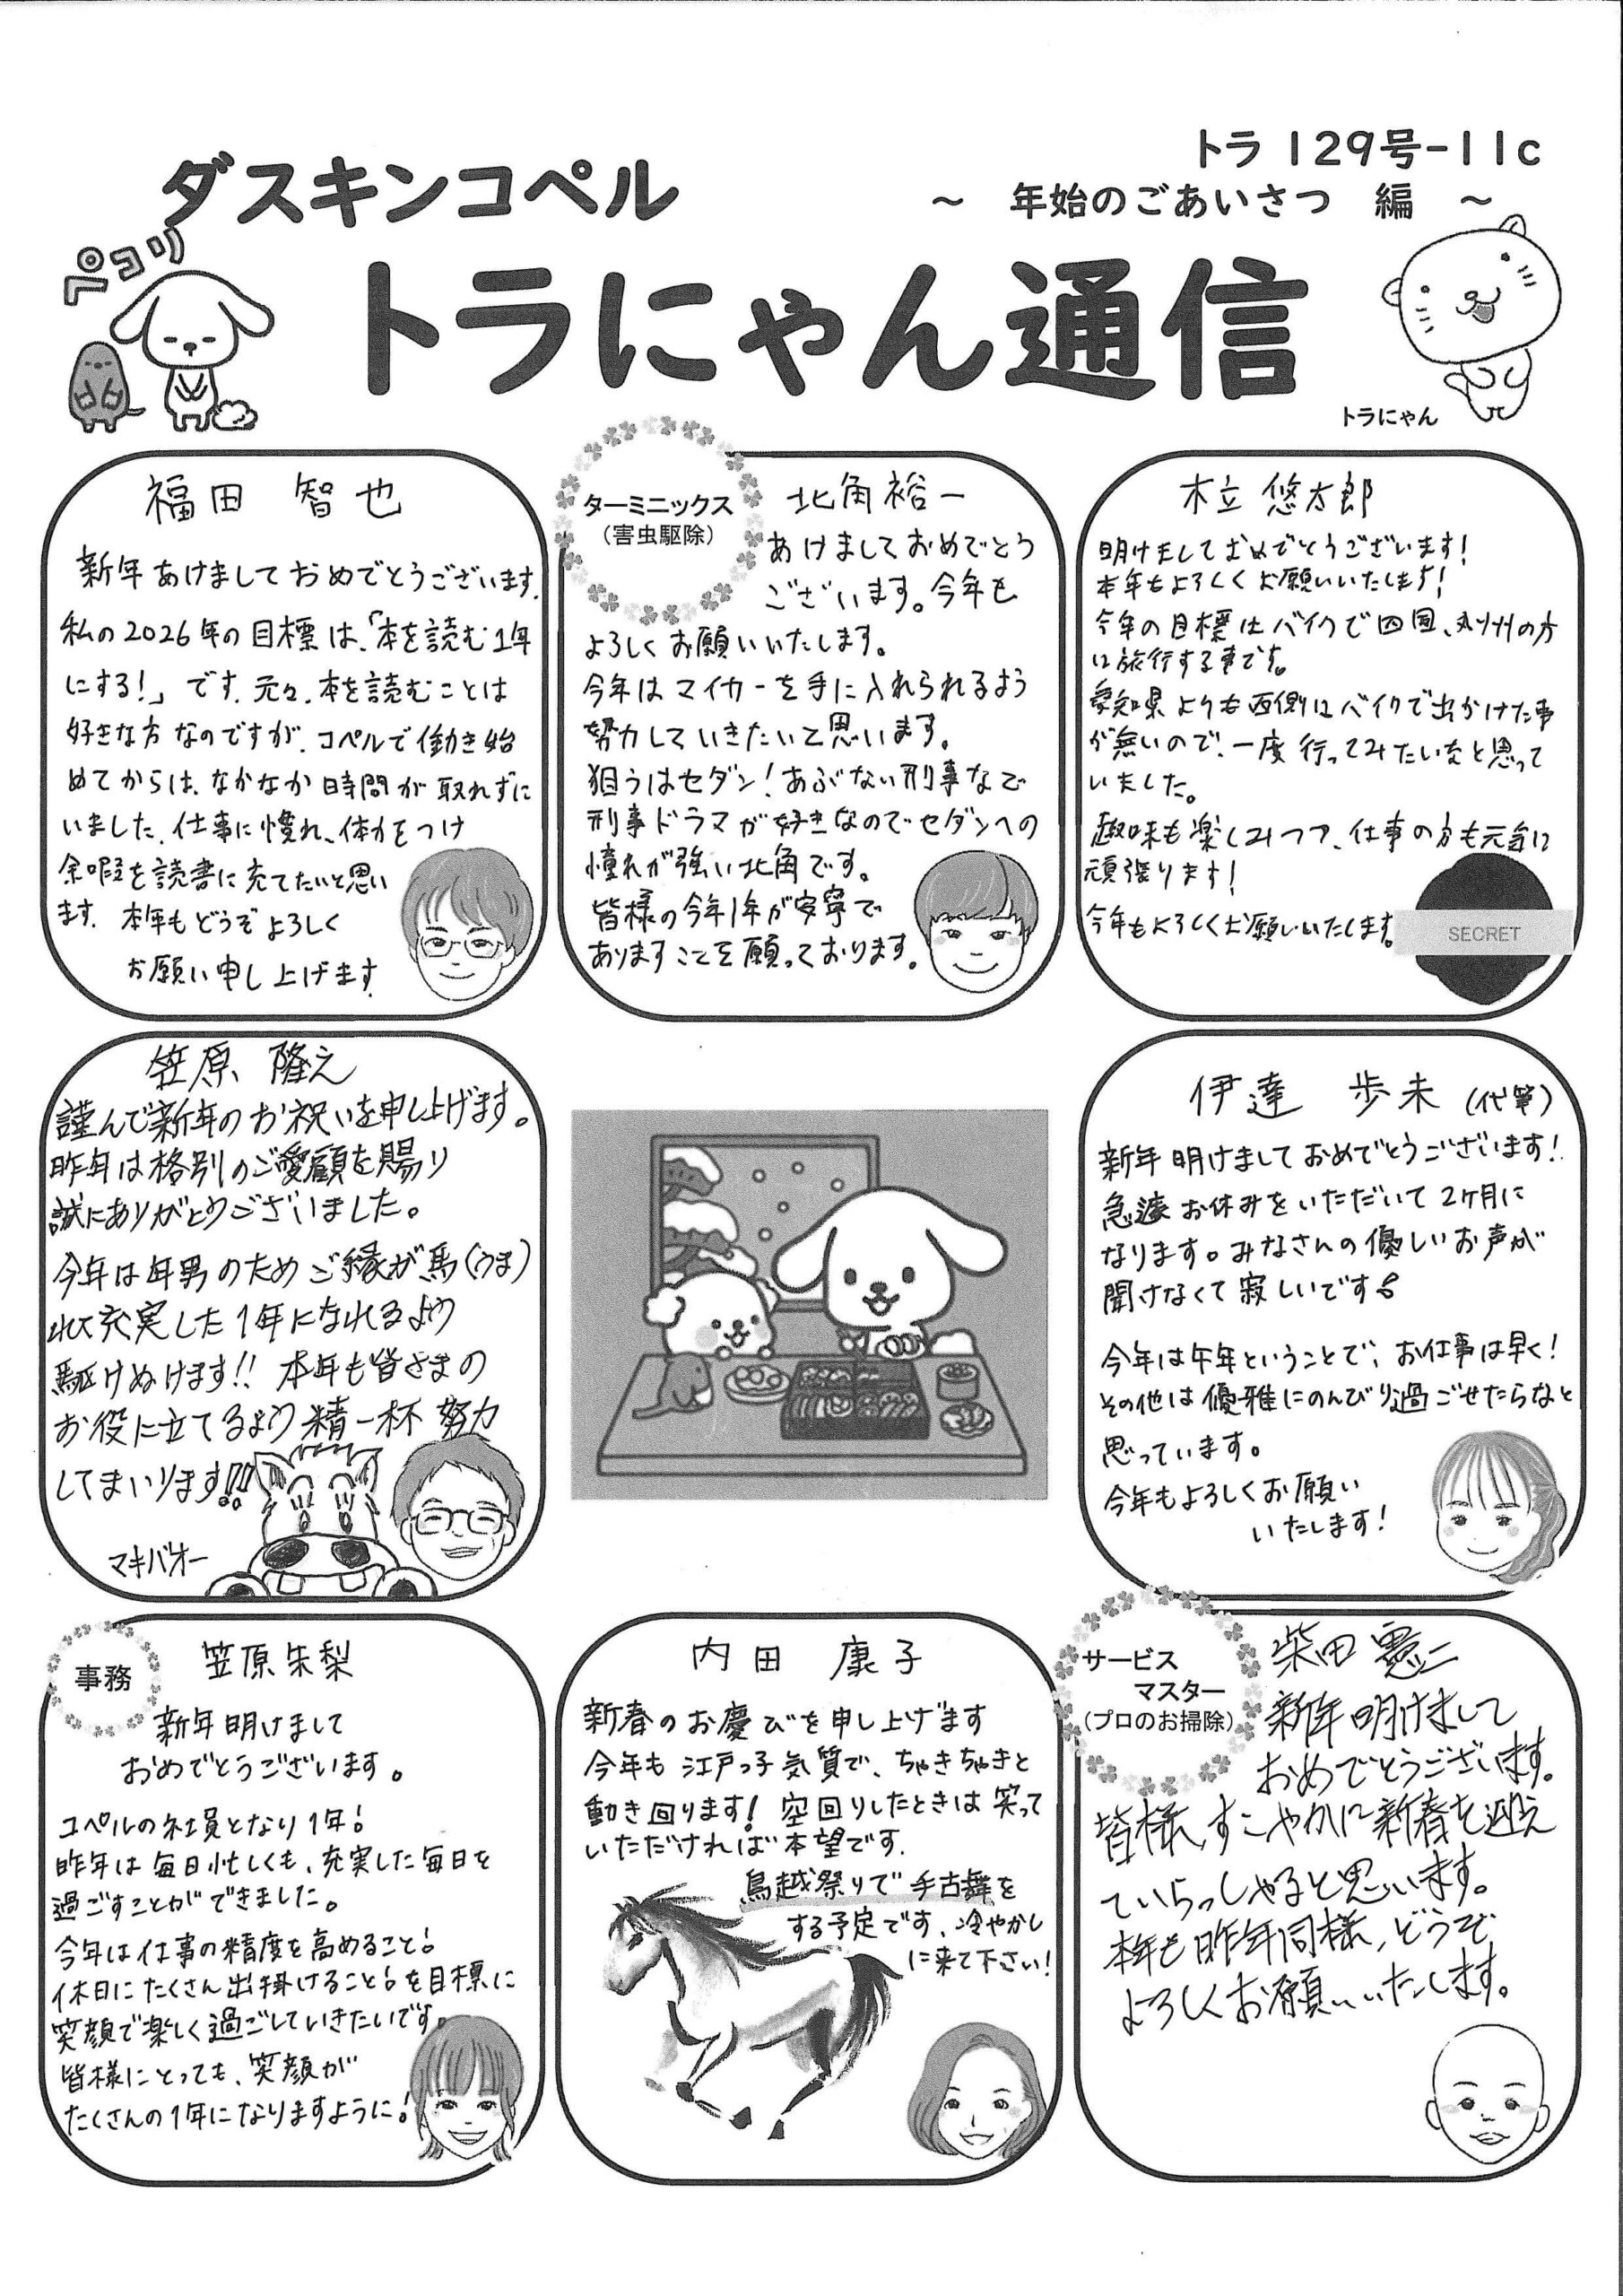 トラ129号-11c
ダスキンコペル
～ 年始のごあいさつ 編 ～
ペコリ
トラにゃん通信
トラにゃん
福田 智也
新年あけましておめでとうございます.
私の2026年の目標は、「本を読む1年
にする!」です. 元々、本を読むことは
好きな方なのですが、コペルで働き始
めてからは、なかなか時間が取れずに
いました. 仕事に慣れ、体力をつけ
余暇を読書に充てたいと思い
ます. 本年もどうぞよろしく
お願い申し上げます.
ターミニックス
(害虫駆除)
北角裕一
あけましておめでとう
ございます。今年も
よろしくお願いいたします。
今年はマイカーを手に入れられるよう
努力していきたいと思います。
狙うはセダン!あぶない刑事など
刑事ドラマが好きなのでセダンへの
憧れが強い北角です。
皆様の今年1年が安寧で
ありますことを願っております。
木立 悠太郎
明けましておめでとうございます!
本年もよろしくお願いいたします!
今年の目標はバイクで四国、九州の方
に旅行する事です。
愛知県よりも西側はバイクで出かけた事
が無いので、一度行ってみたいなと思って
いました。
趣味も楽しみつつ、仕事の方も元気に
頑張ります!
今年もよろしくお願いいたします。
SECRET
笠原 隆之
謹んで新年のお祝いを申し上げます。
昨年は格別のご愛顧を賜り
誠にありがとうございました。
今年は年男のためご縁が馬(うま)
れて充実した1年になれるよう
駆けぬけます!! 本年も皆さまの
お役に立てるよう精一杯努力
してまいります!!
マキバオー
伊達 歩未(代筆)
新年明けましておめでとうございます!
急遽お休みをいただいて2ヶ月に
なります。みなさんの優しいお声が
聞けなくて寂しいです
今年は午年ということで、お仕事は早く!
その他は優雅にのんびり過ごせたらなと
思っています。
今年もよろしくお願い
いたします!
事務
笠原朱梨
新年明けまして
おめでとうございます。
コペルの社員となり1年!
昨年は毎日忙しくも、充実した毎日を
過ごすことができました。
今年は仕事の精度を高めること!
休日にたくさん出掛けること!を目標に
笑顔で楽しく過ごしていきたいです。
皆様にとっても、笑顔が
たくさんの1年になりますように!
内田 康子
新春のお慶びを申し上げます
今年も江戸っ子気質で、ちゃきちゃきと
動き回ります! 空回りしたときは笑って
いただければ本望です.
鳥越祭りで手古舞を
する予定です、冷やかし
に来て下さい!
サービス
マスター
(プロのお掃除)
柴田 憲二
新年明けまして
おめでとうございます。
皆様、すこやかに新春を迎え
ていらっしゃると思います。
本年も昨年同様、どうぞ
よろしくお願いいたします。